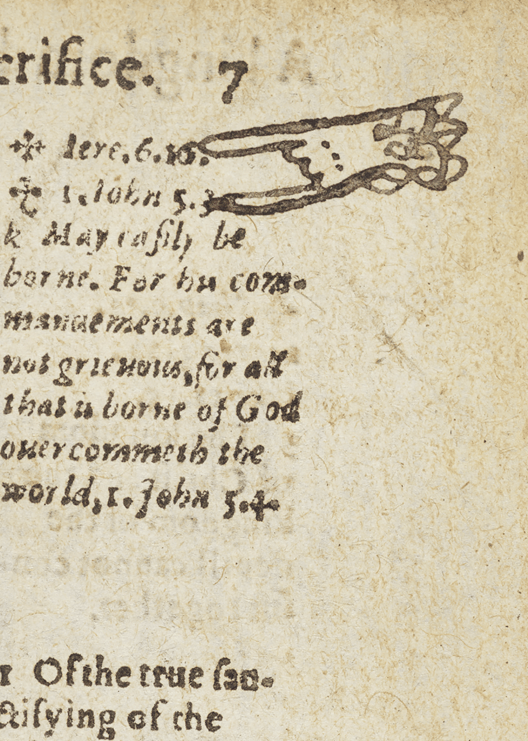 crifice. 7
✣ Iere.6.16.
✣ 1.Iohn 5.3
k May eaſily be
borne. For his com-
mandements are
not grieuous, for all
that is borne of God
ouercommeth the
world, 1. John 5.4.
1 Of the true ſan-
ctifying of the